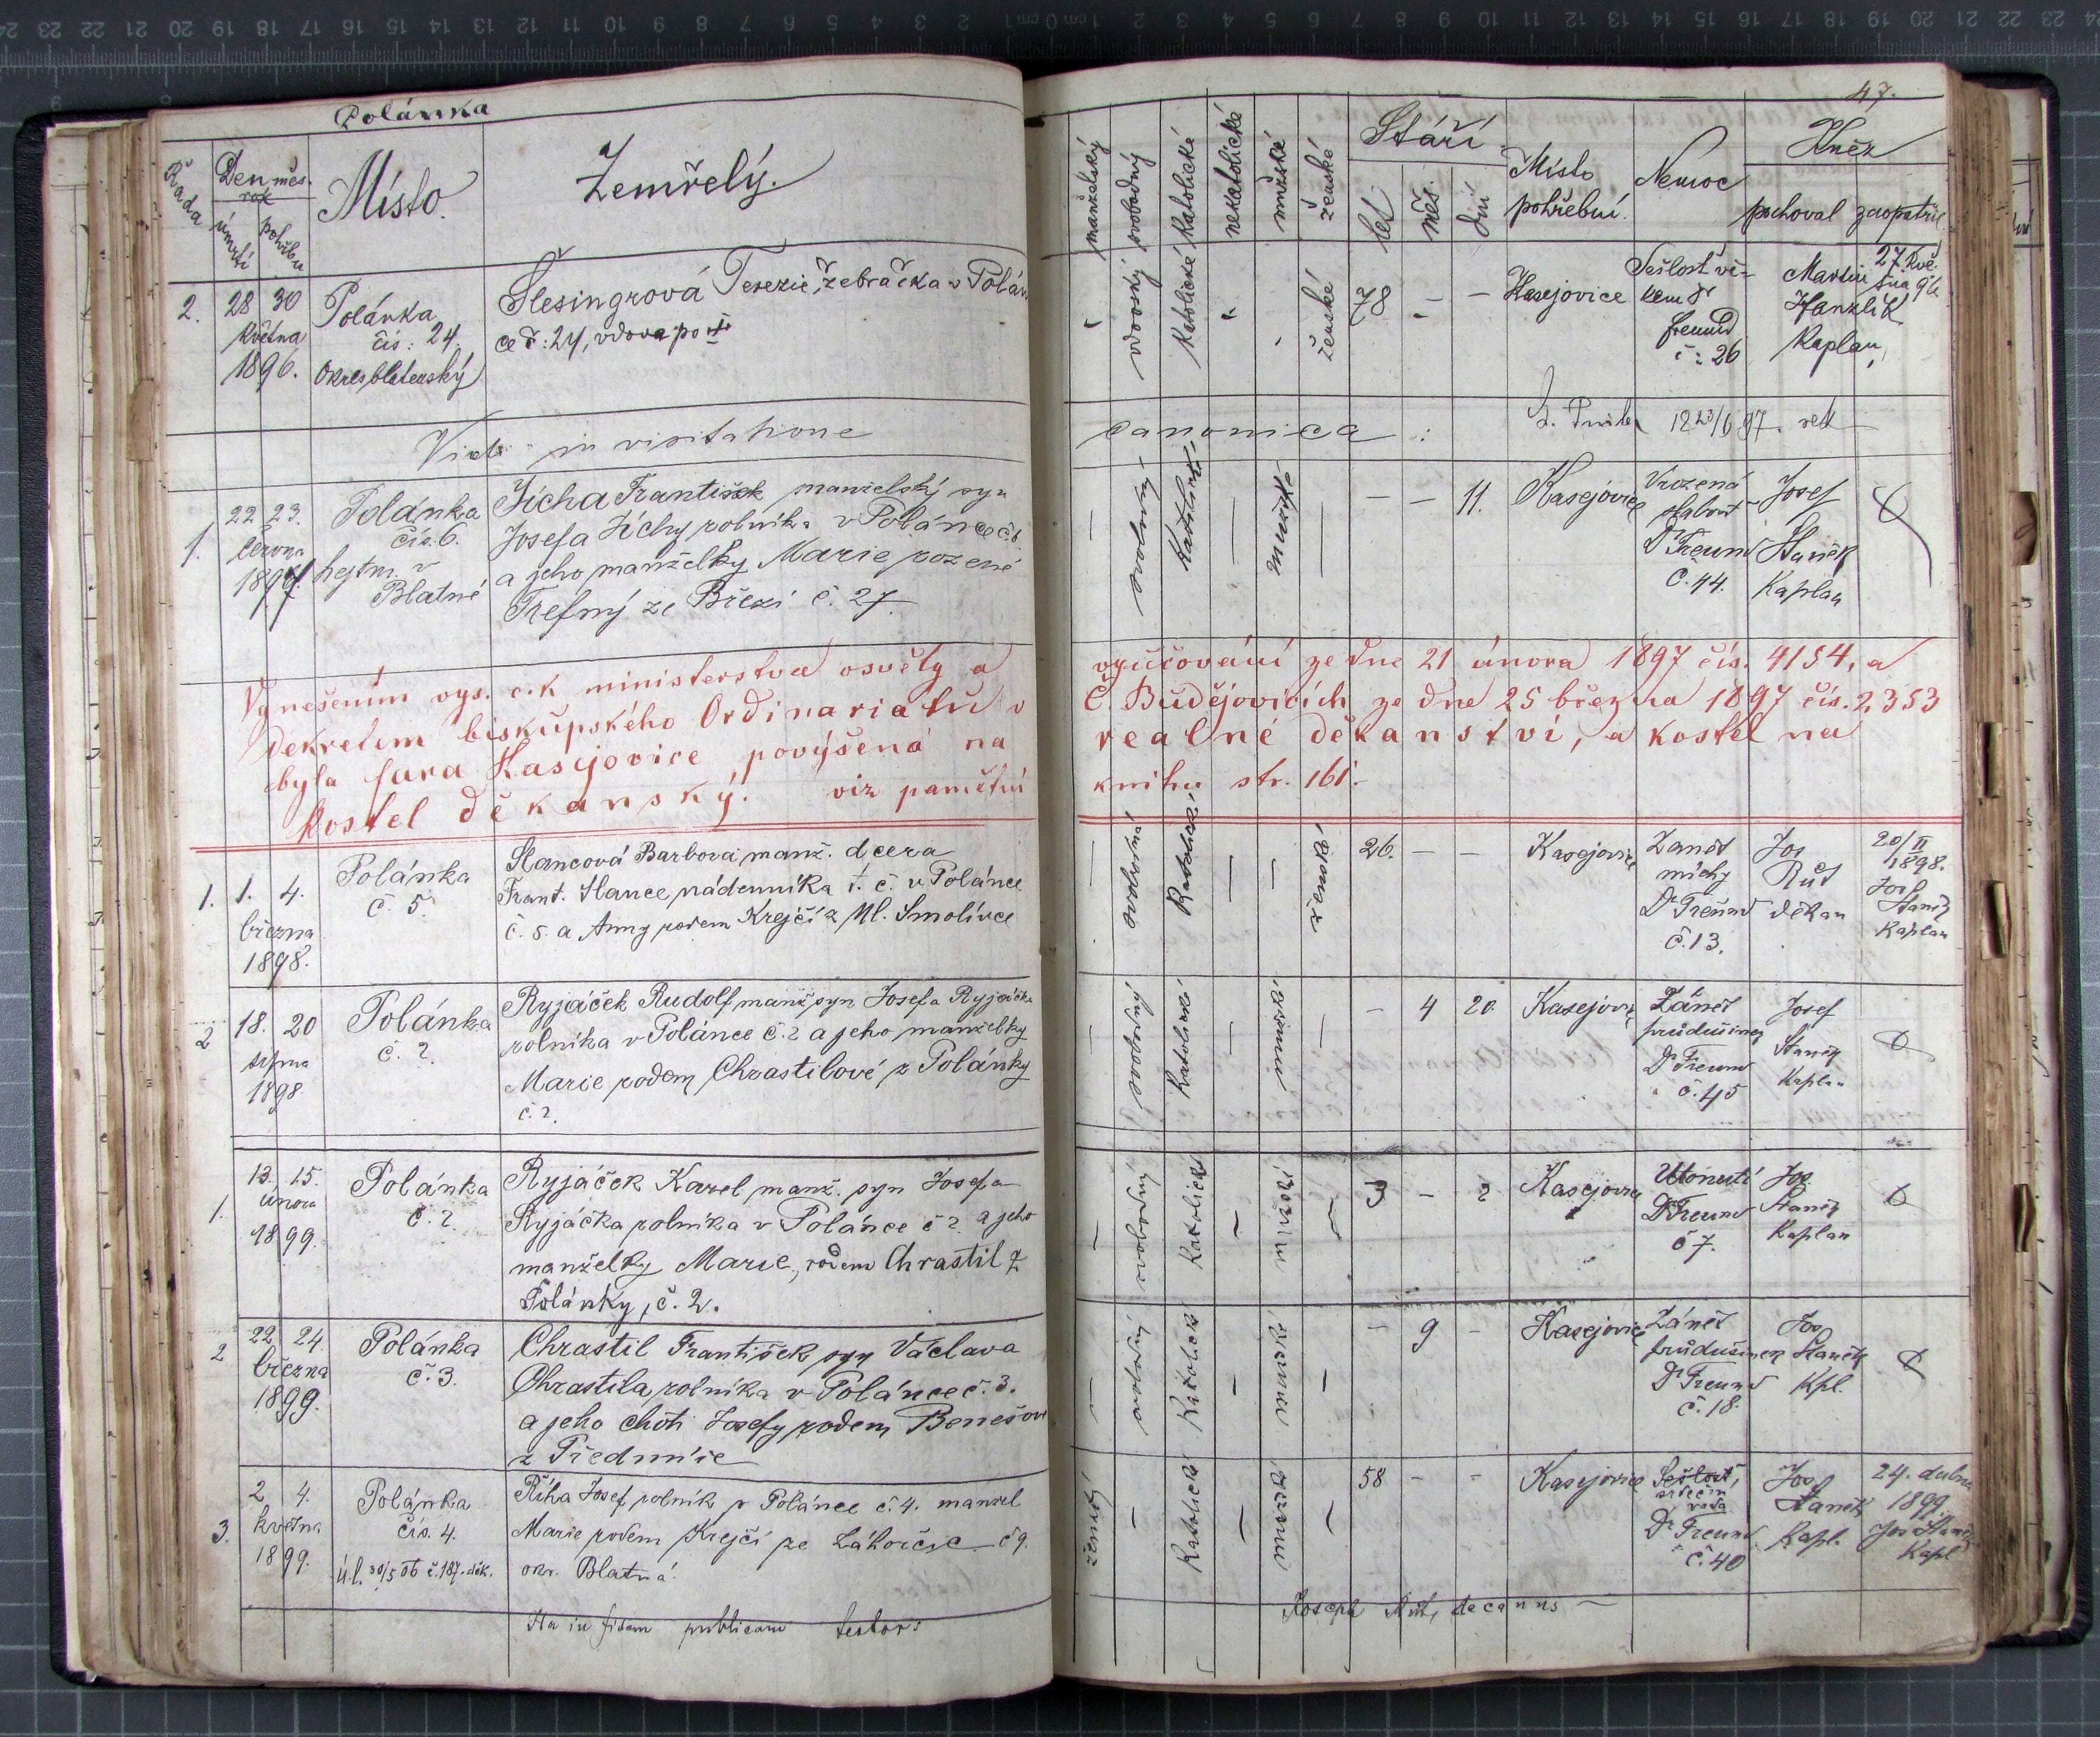 Polánka
47.
Řada
Den měs.
rok
úmrtí
pohřbu
Místo.
Zemřelý.
manželský
svobodný
katolické
nekatolické
mužské
ženské
Stáří
let
měs.
dní
Místo
pohřební.
Nemoc
Kněz
pochoval
zaopatřil
2.
28 30
května
1896.
Polánka
čís: 24.
Okres blatenský
Šlesingrová Terezie, žebračka v Polán
ce č: 24, vdova po
vdovský
katolické
ženské
78 - -
Kasejovice
Sešlost vě-
kem Dr
Freund
č: 26
Martin
Hanzlík
Kaplan,
27 Kvě.
tna 96
in visitatione
canonica :
1.
22 23.
června
1897.
Polánka
čís. 6.
hejtm. v
Blatné
Jícha František manželský syn
Josefa Jíchy rolníka v Polánce č. 6
a jeho manželky Marie rozené
Trefný ze Březí č. 27.
svobodný
katolické
mužské
- - 11.
Kasejovice
Vrozená
slabost
Dr Freund
č. 44.
Josef
Staněk
Kaplan
Vynešením vys. c. k ministerstva osvěty a
vyučování ze dne 21 února 1897 čís. 4154, a
dekretem biskupského Ordinariatu v
Č. Budějovicích ze dne 25 března 1897 čís. 2353
byla fara Kasejovice povýšená na
realné děkanství, a kostel na
kostel děkanský. viz pamětní
knihu str. 161.
1.
1. 4.
března
1898.
Polánka
č. 5.
Slancová Barbora manž. dcera
Frant. Slance nádenníka t. č. v Polánce
č. 5. a Anny rodem Krejčí z Ml. Smolivce
svobodná
katolické
ženské
26. - -
Kasejovice
Zánět
míchy
Dr Freund
č. 13.
Jos
Růt
děkan
20/II
1898.
Jos
Staněk
Kaplan
2
18. 20
srpna
1898
Polánka
č. 2.
Ryjáček Rudolf manž syn Josefa Ryjáčka
rolníka v Polánce č. 2 a jeho manželky
Marie rodem Chrastilové z Polánky
č. 2.
svobodný
katolické
mužské
- 4 20
Kasejovice
Zánět
průdušinek
Dr Freund
č. 45
Josef
Staněk
Kaplan
1.
13. 15.
února
1899.
Polánka
č. 2.
Ryjáček Karel manž. syn Josefa
Ryjáčka rolníka v Polánce č 2. a jeho
manželky Marie, rodem Chrastil z
Polánky, č. 2.
svobodný
katolické
mužské
3 - 2
Kasejovice
Utonutí
Dr Freund
č 7.
Jos.
Staněk
Kaplan
2
22 24.
března
1899.
Polánka
č. 3.
Chrastil František syn Václava
Chrastila rolníka v Polánce č. 3.
a jeho choti Josefy rodem Benešov
z Předmíře
svobodný
katolické
mužské
- 9 -
Kasejovice
Zánět
průdušinek
Dr Freund
č. 18.
Jos
Staněk
Kpl.
3.
2 4.
května
1899.
Polánka
čís. 4.
Ú. l. 30/5 06 č. 187. děk.
Říha Josef rolník v Polánce č. 4. manžel
Marie rodem Krejčí ze Záhorčic č 9.
okr. Blatná.
ženatý
katolické
mužské
58 - -
Kasejovice
Sešlost,
srdeční
vada
Dr Freund
č. 40
Jos
Staněk
Kapl.
24. dubna
1899.
Jos Staněk
Kapl
Ita in fidem publicam testor:
Joseph Růt, decanus